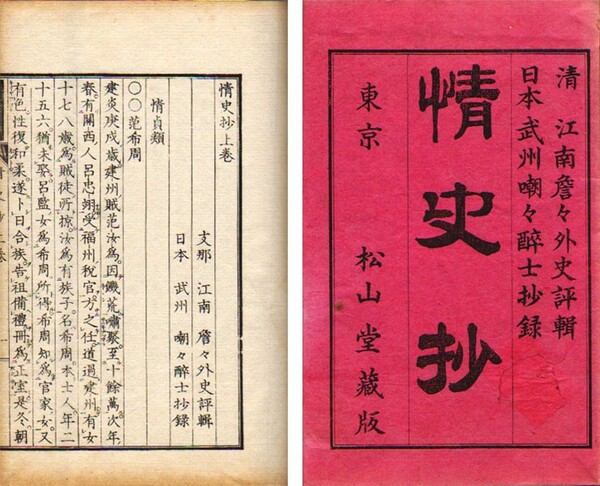 清 江南詹々外史評輯
日本 武州嘲々醉士抄録
情史抄
東京 松山堂藏版
情史抄上卷
支那 江南 詹々外史評輯
日本 武州 嘲々醉士抄録
情貞類
〇〇范希周
建炎庚戌歳建州賊范汝爲因饑荒嘯聚至十餘萬次年
春有關西人呂忠翊受福州税官方之任道過建州有女
十七八歳爲賊徒所掠汝爲有族子名希周本士人年二
十五六猶未娶呂監女爲希周所得希周知爲官家女又
有色性復和柔遂卜日合族告祖備禮冊爲正室是冬朝